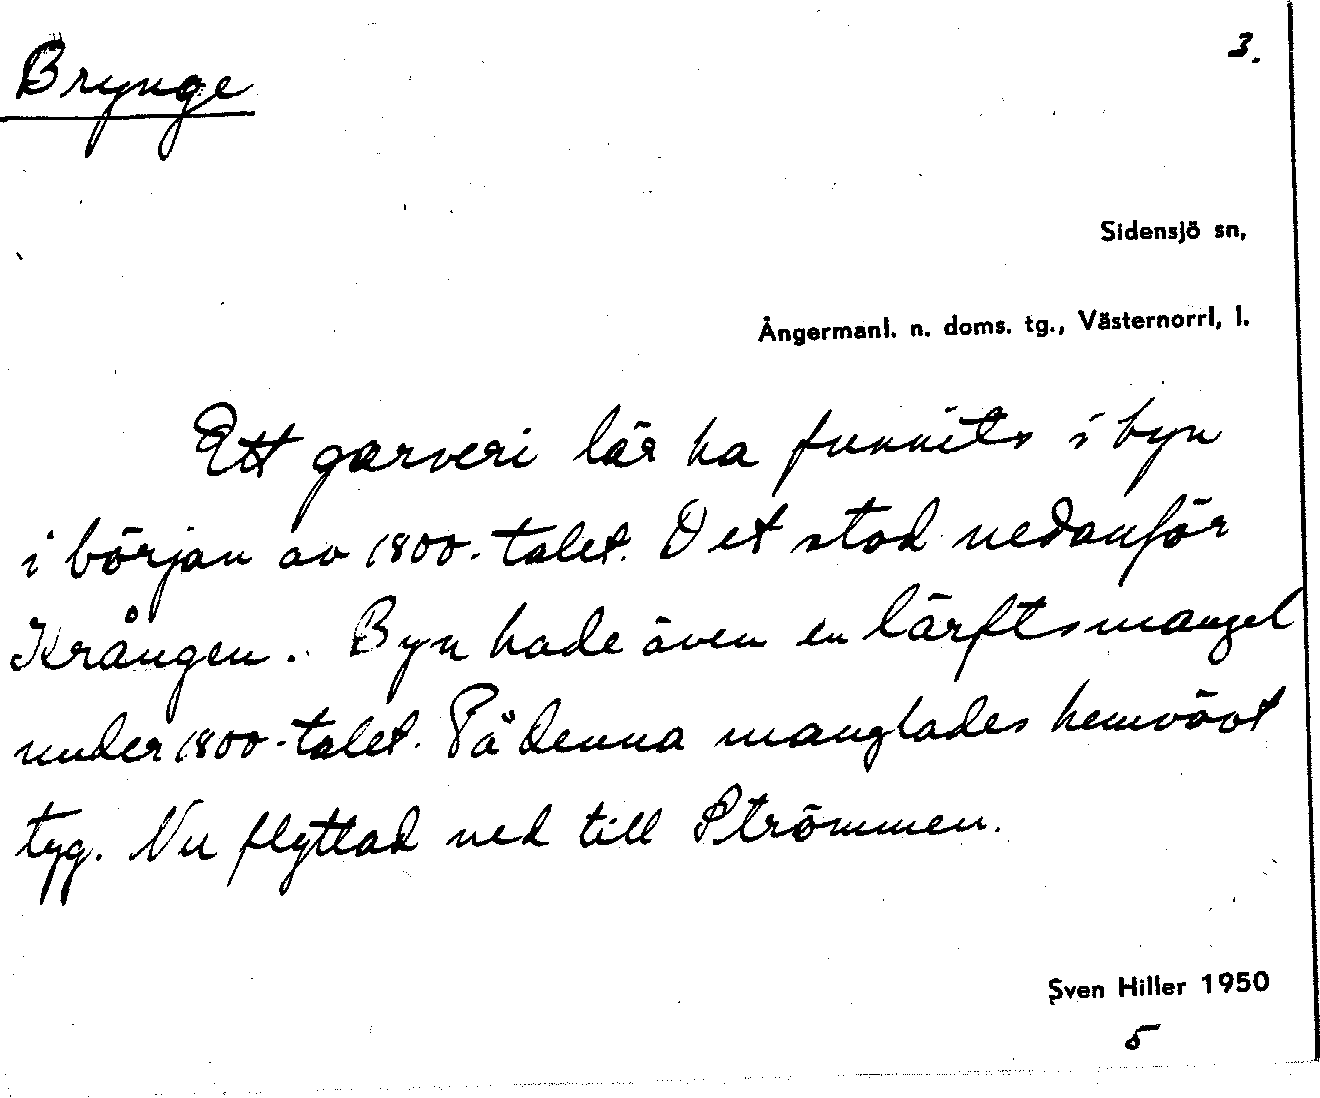 Brynge
3.
Sidensjö sn,
Ångermanl. n. doms. tg., Västernorrl, l.
Ett garveri lär ha funnits i byn
i början av 1800-talet. Det stod nedanför
Krången. Byn hade även en lärftsmangel
under 1800-talet. På denna manglades hemvävt
tyg. Nu flyttad ned till Strömmen.
Sven Hiller 1950
5